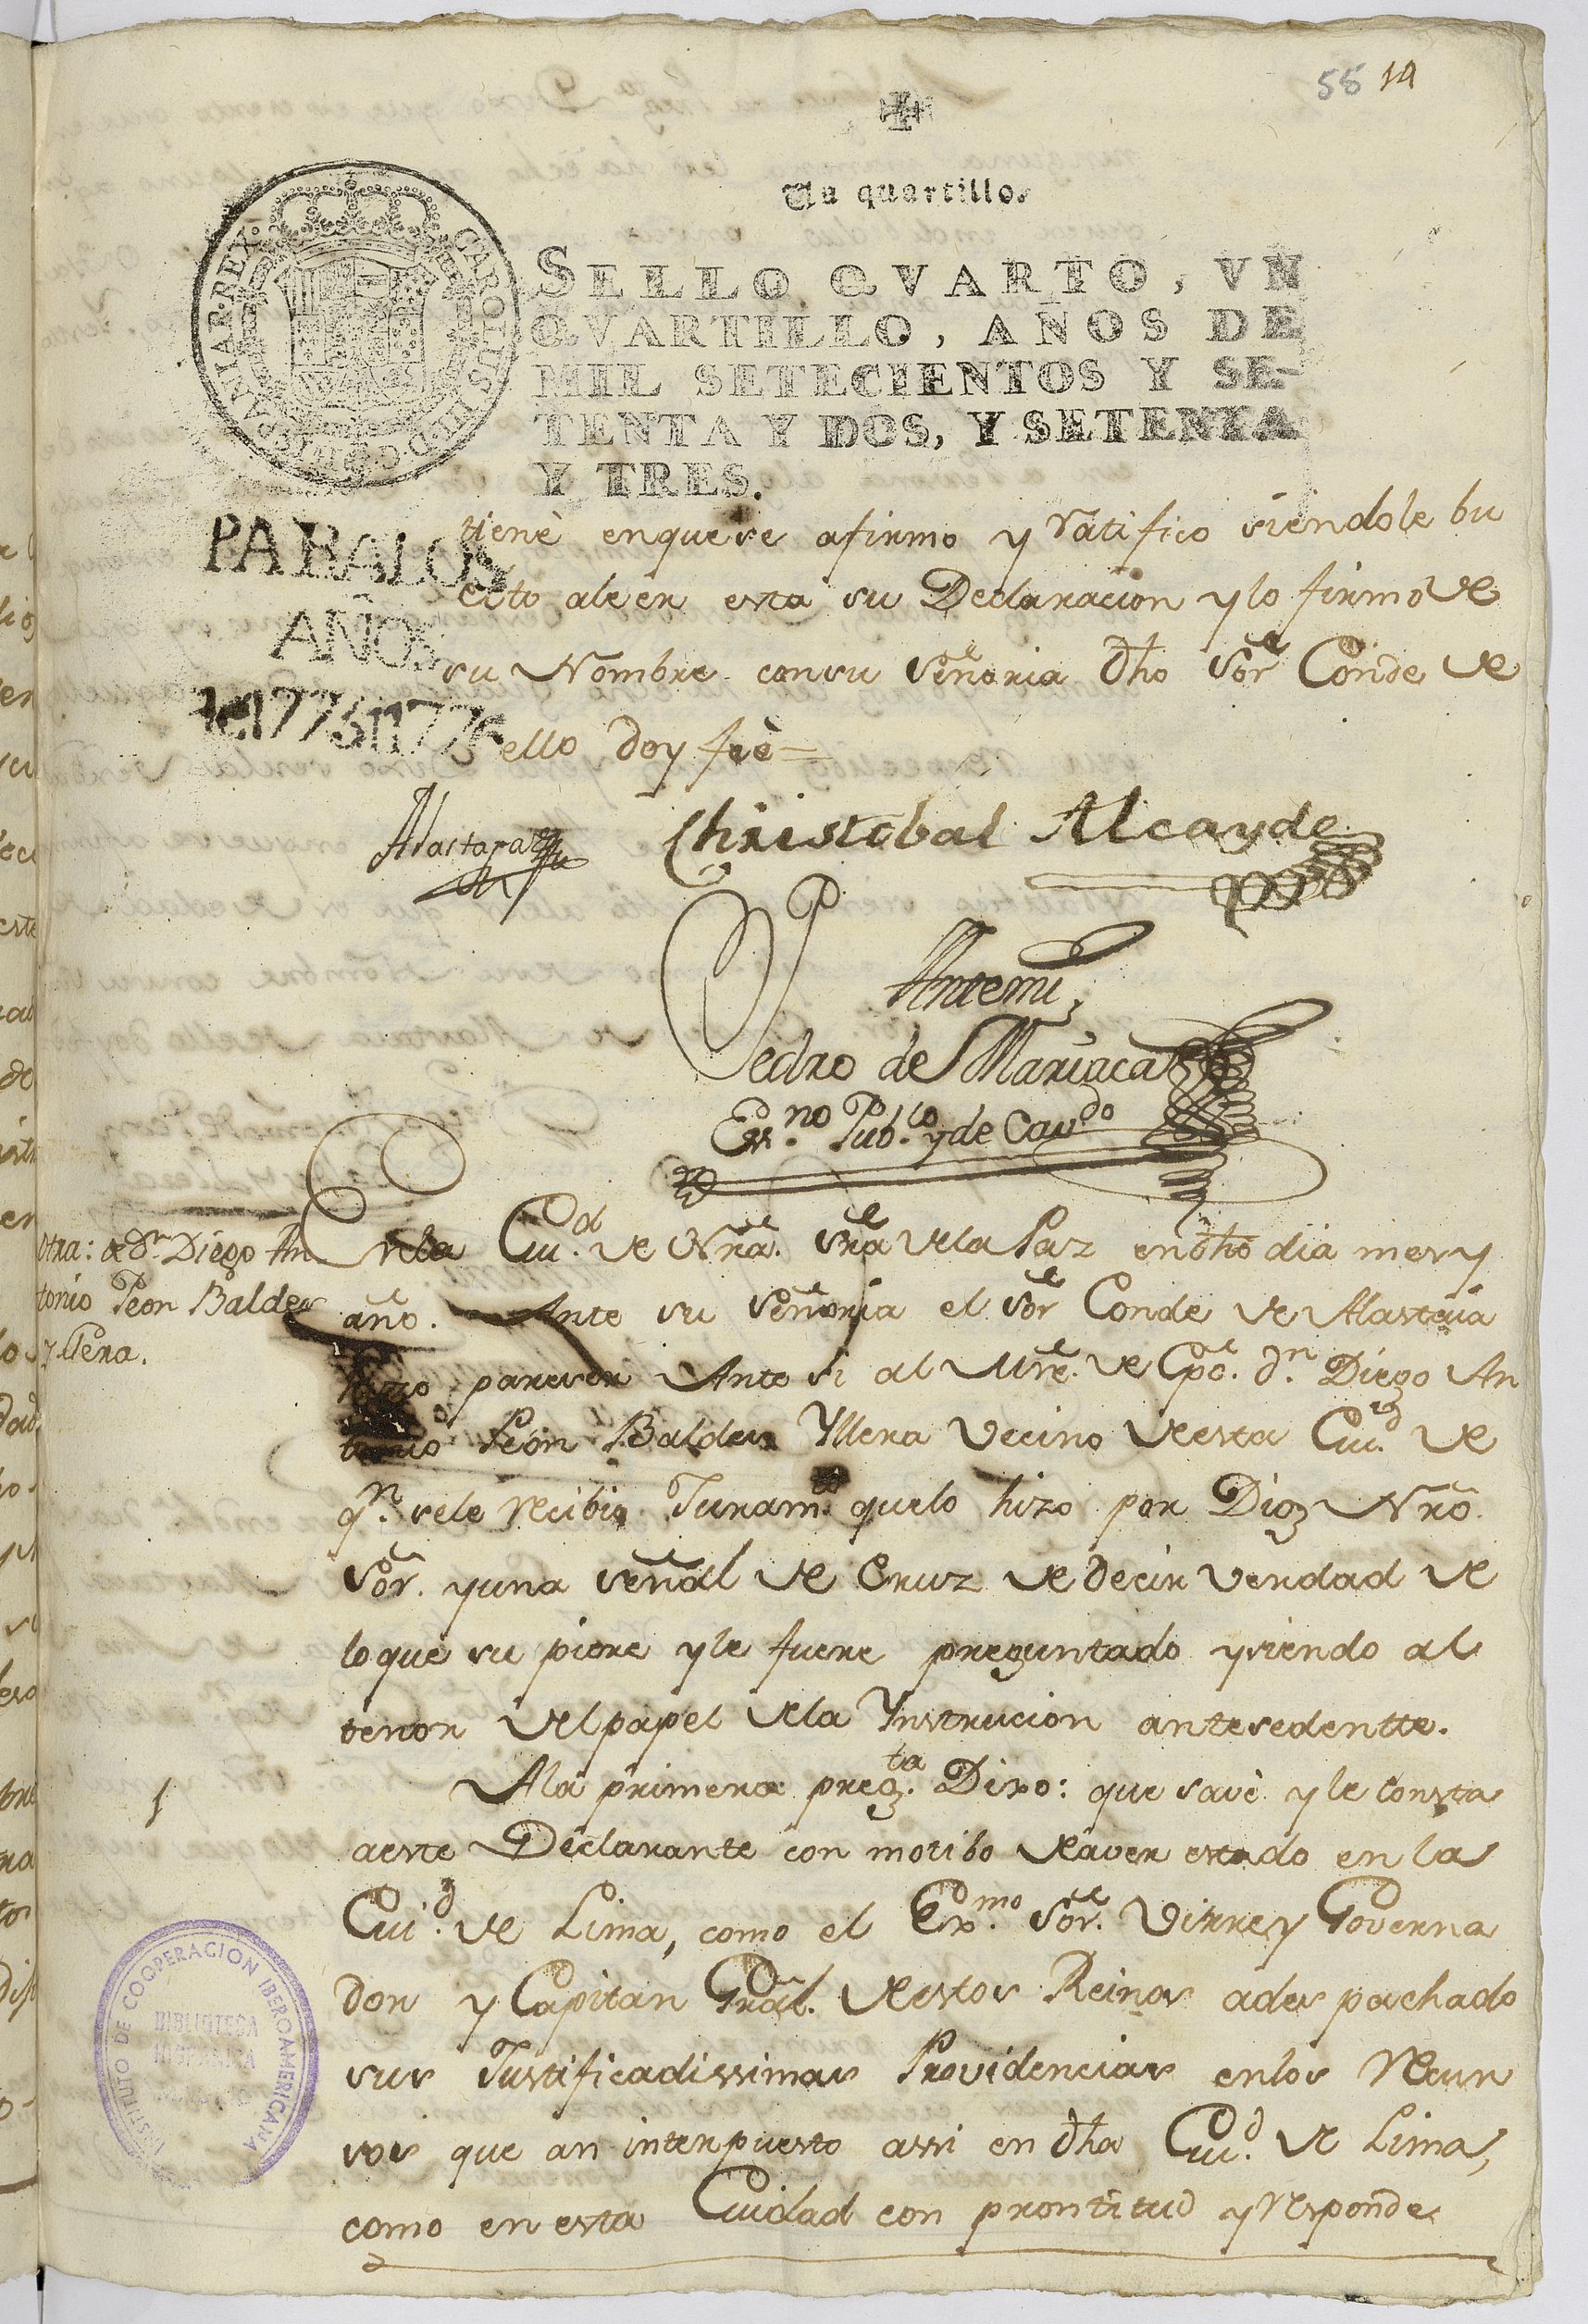 58 14
Un quartillo.
SELLO QVARTO, VN
QVARTILLO, AÑOS DE
MIL SETECIENTOS Y SE-
TENTA Y DOS, Y SETENTA
Y TRES.
PARALOS
AÑOS
tiene enquese afirmo y ratifico siendole bu
elto aleer esta su Declaracion ylo firmo de
su Nombre consu Señoria dho Sor Conde de
ello doy feè=
Alastaya
Christobal Alcayde
Antemi
Pedro de Mariaca
Essno Pubco y de Cavdo
Otra: de Dn Diego An
tonio Peon Baldes
y llera.
Enla Ciud. de Nra. Sra dela Paz endho dia mes y
año. Ante su Señoria el Sor Conde de Alastaia
hizo pareser Ante si al Mre. de Cpo. Dn. Diego An
tonio Peon Baldes Yllera Vecino desta Ciud. de
qn. sele recibio Juramto. quelo hizo por Dios Nro.
Sor. yuna señal de Cruz de decir verdad de
loque su piere yle fuere preguntado ysiendo al
tenor del papel dela Ynstrucion antesedentte.
1
Ala primera pregta. Dixo: que savè yle consta
aeste Declarante con motibo deaver estado en la
Ciud. de Lima, como el Exmo. Sor. Virrey Governa
dor y Capitan Gral. destos Reinos ades pachado
sus Justificadissimas Providencias enlos Recur
sos que an interpuesto assi en dha Ciud. de Lima,
como en esta Ciudad con prontitud y responde
INSTITUTO DE COOPERACION IBEROAMERICANA
BIBLIOTECA
HISPANICA